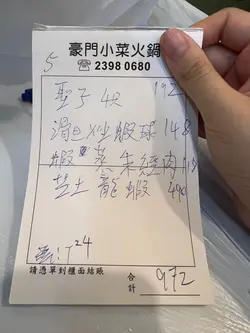 豪門小菜火鍋
☎ 2398 0680
5
聖子 4只 192
滑旦炒蝦球 148
蝦 蒸 118
芝士 龍蝦 490
T24
請憑單到櫃面結賬
合計 972